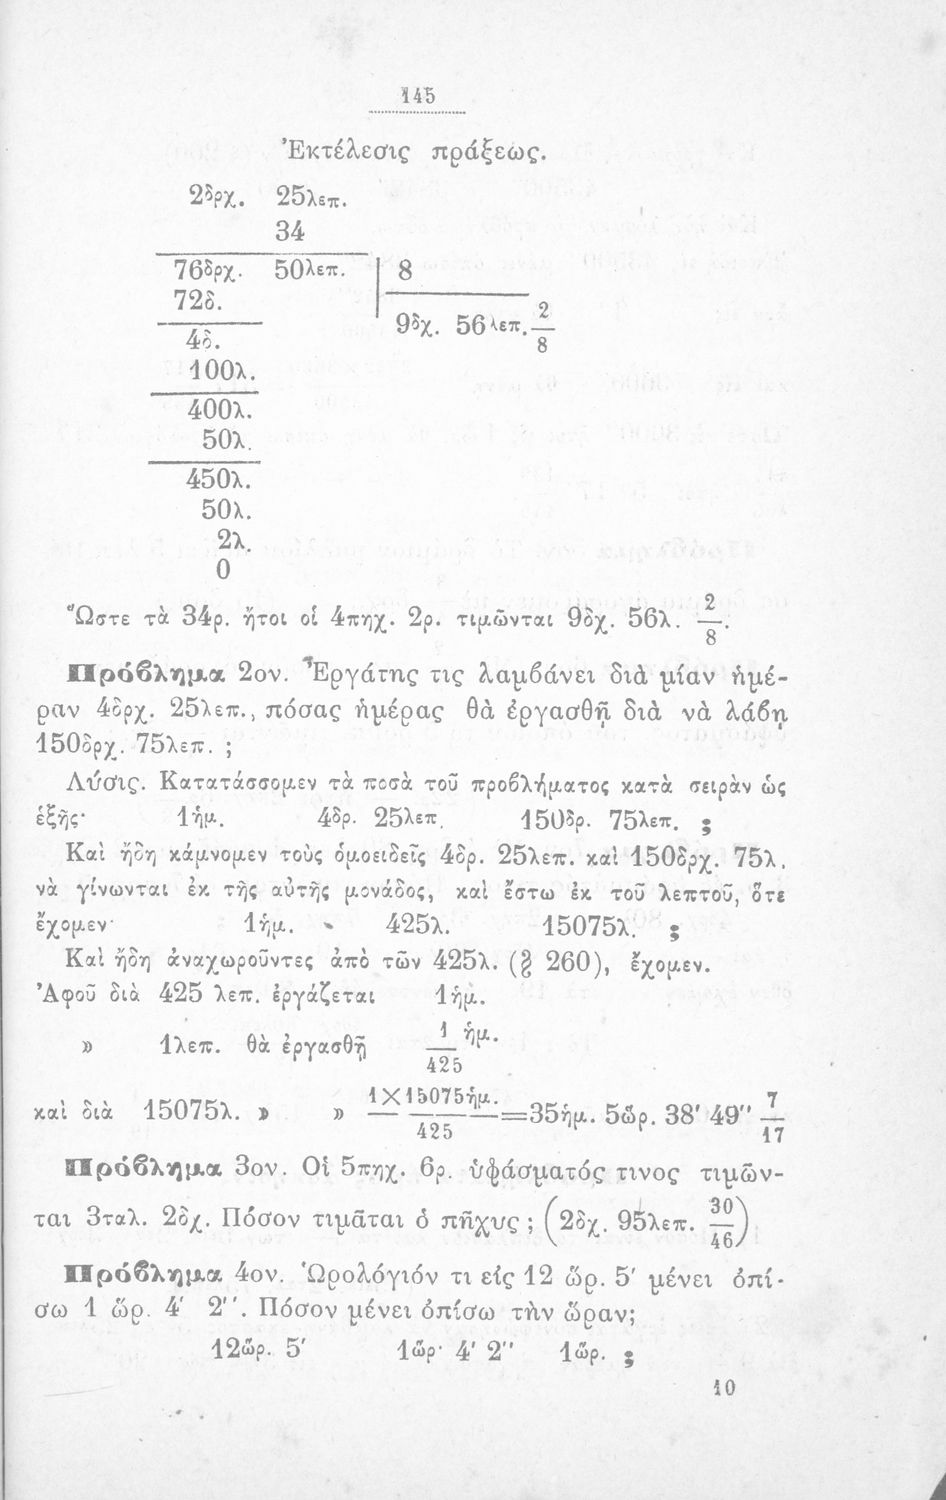 145
Ἐκτέλεσις πράξεως.
2δρχ. 25λεπ.
34
76δρχ. 50λεπ. 8
72δ.
9δχ. 56λεπ. 2/8
4δ.
100λ.
400λ.
50λ.
450λ.
50λ.
2λ.
0
Ὥστε τὰ 34ρ. ἤτοι οἱ 4πηχ. 2ρ. τιμῶνται 9δχ. 56λ. 2/8.
Πρόβλημα 2ον. Ἐργάτης τις λαμβάνει διὰ μίαν ἡμέ-
ραν 4δρχ. 25λεπ., πόσας ἡμέρας θὰ ἐργασθῇ διὰ νὰ λάβῃ
150δρχ. 75λεπ. ;
Λύσις. Κατατάσσομεν τὰ ποσὰ τοῦ προβλήματος κατὰ σειρὰν ὡς
ἑξῆς· 1ἡμ. 4δρ. 25λεπ. 150δρ. 75λεπ. ;
Καὶ ἤδη κάμνομεν τοὺς ὁμοειδεῖς 4δρ. 25λεπ. καὶ 150δρχ. 75λ.
νὰ γίνωνται ἐκ τῆς αὐτῆς μονάδος, καὶ ἔστω ἐκ τοῦ λεπτοῦ, ὅτε
ἔχομεν· 1ἡμ. 425λ. 15075λ. ;
Καὶ ἤδη ἀναχωροῦντες ἀπὸ τῶν 425λ. (§ 260), ἔχομεν.
Ἀφοῦ διὰ 425 λεπ. ἐργάζεται 1ἡμ.
» 1λεπ. θὰ ἐργασθῇ 1/425 ἡμ.
καὶ διὰ 15075λ. » » 1Χ15075ἡμ./425=35ἡμ. 5ὥρ. 38' 49'' 7/17
Πρόβλημα 3ον. Οἱ 5πηχ. 6ρ. ὑφάσματός τινος τιμῶν-
ται 3ταλ. 2δχ. Πόσον τιμᾶται ὁ πῆχυς ; (2δχ. 95λεπ. 30/46)
Πρόβλημα 4ον. Ὡρολόγιόν τι εἰς 12 ὥρ. 5' μένει ὀπί-
σω 1 ὥρ. 4' 2''. Πόσον μένει ὀπίσω τὴν ὥραν;
12ὥρ. 5' 1ὥρ· 4' 2'' 1ὥρ. ;
10